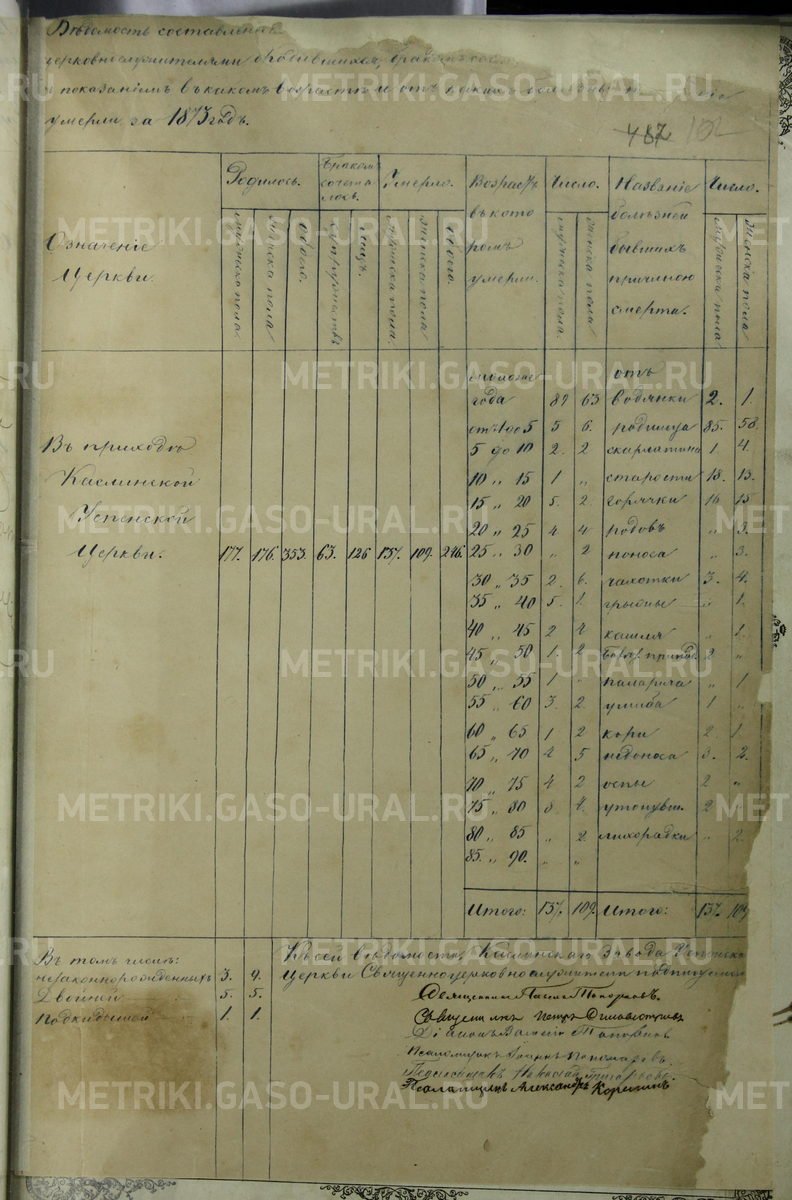 Вѣдомость составленная
церковнослужителями о родившихся, бракомъ
показаніемъ въ какомъ возрастѣ и отъ какихъ
умерли за 1873 годъ.
487 102
Означеніе Церкви.
Родилось.
мужеска пола
женска пола
обоего.
Бракомъ сочета лось.
супружествъ
лицъ.
Умерло.
мужеска пола.
женска пола
обоего.
Возрастъ въ кото ромъ умерли.
Число.
мужеска пола.
женска пола.
Названіе болѣзней бывшихъ причиною смерти.
Число.
мужеска пола
женска пола
Въ приходѣ
Каслинской
Успенской
Церкви. 177. 176. 353. 63. 126 137. 109. 246.
года 89 63 отъ водянки 2. 1.
отъ 1 до 5 5 6. родимца 85. 58.
5 до 10 2. 2 скарлатина 1 4.
10 „ 15 1 „ старости 18. 13.
15 „ 20 5. 2 горячки 16 15
20 „ 25 4 4 родовъ „ 3.
25 „ 30 „ 2 поноса „ 3.
30 „ 35 2. 6. чахотки 3. 4.
35 „ 40 5. 1. грыжи „ 1.
40 „ 45 2 4 кашля „ 1.
45 „ 50 1. 2 2 „
50 „ 55 1 „ „ 1
55 „ 60 3. 2. ушиба 1 „
60 „ 65 1 2 кори 2. 1.
65 „ 70 4 5 недоноса 3. 2.
70 „ 75 4 2 оспы 2 „
75 „ 80 8. 4. утонувш. 2
80 „ 85 „ 2. лихорадки „ 2.
85. „ 90. „ „
Итого: 137. 109. Итого: 137. 109
Въ томъ числѣ:
незаконнорожденныхъ 3. 4.
Двойней 5. 5.
Подкидышей 1. 1.
Къ сей вѣдомости, Каслинскаго Завода Успенской
Церкви Священноцерковнослужители подписуемся
Священникъ Павелъ Топорковъ.
Священникъ Петръ
Діаконъ Василій Поповъ
Псаломщикъ Іоаннъ Пономаревъ
Псаломщикъ Николай
Псаломщикъ Александръ
METRIKI.GASO-URAL.RU